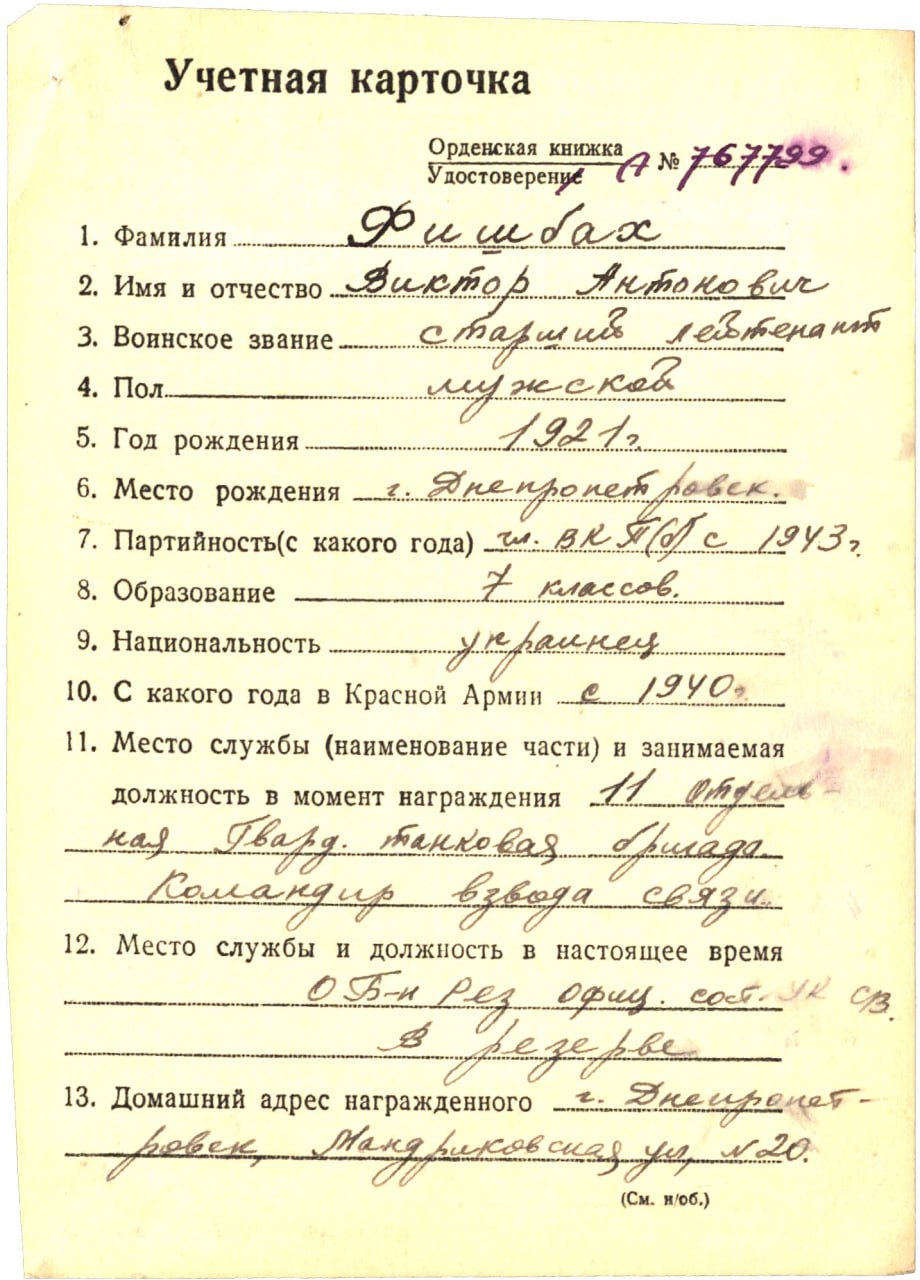 Учетная карточка
Орденская книжка
Удостоверение А № 767799.
1. Фамилия Фишбах
2. Имя и отчество Виктор Антонович
3. Воинское звание старший лейтенант
4. Пол мужской
5. Год рождения 1921 г.
6. Место рождения г. Днепропетровск.
7. Партийность(с какого года) чл. ВКП(б) с 1943 г.
8. Образование 7 классов.
9. Национальность украинец
10. С какого года в Красной Армии с 1940 г.
11. Место службы (наименование части) и занимаемая
должность в момент награждения 11 Отдель-
ная Гвард. танковая бригада
Командир взвода связи.
12. Место службы и должность в настоящее время
ОБ-н Рез офиц. сост. УК СВ.
В резерве
13. Домашний адрес награжденного г. Днепропет-
ровск, Мандриковская ул, N 20.
(См. н/об.)